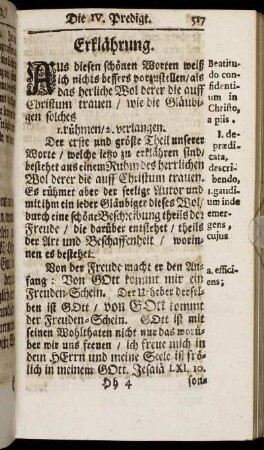 Die IV. Predigt. 517
Erklährung.
Aus diesen schönen Worten weiß
ich nichts bessers vorzustellen/als
das herliche Wol derer die auff
Christum trauen / wie die Gläubi-
gen solches
1. rühmen/ 2. verlangen.
Der erste und gröste Theil unserer
Worte / welche ietzo zu erklähren sind/
bestehet aus einem Ruhm des herrlichen
Wol derer die auf Christum trauen.
Es rühmet aber der seelige Autor und
mit ihm ein jeder Gläubiger dieses Wol/
durch eine schöne Beschreibung theils der
Freude / die darüber entstehet / theils
der Art und Beschaffenheit / worin-
nen es bestehet.
Von der Freude macht er den An-
fang : Von GOtt kommt mir ein
Freuden-Schein. Der Uhrheber dersel-
ben ist GOtt / von GOtt kommt
der Freuden-Schein. GOtt ist mit
seinen Wohlthaten nicht nur das worü-
ber wir uns freuen / ich freue mich in
dem HErrn und meine Seele ist frö-
lich in meinem GOtt. Jesaiä LXI. 10.
Hh 4 son-
Beatitu-
do con-
fidenti-
um in
Christo,
a piis.
I. de-
prædi-
cata,
descri-
bendo,
1. gaudi-
um inde
emer-
gens,
cujus
a. effici-
ens;